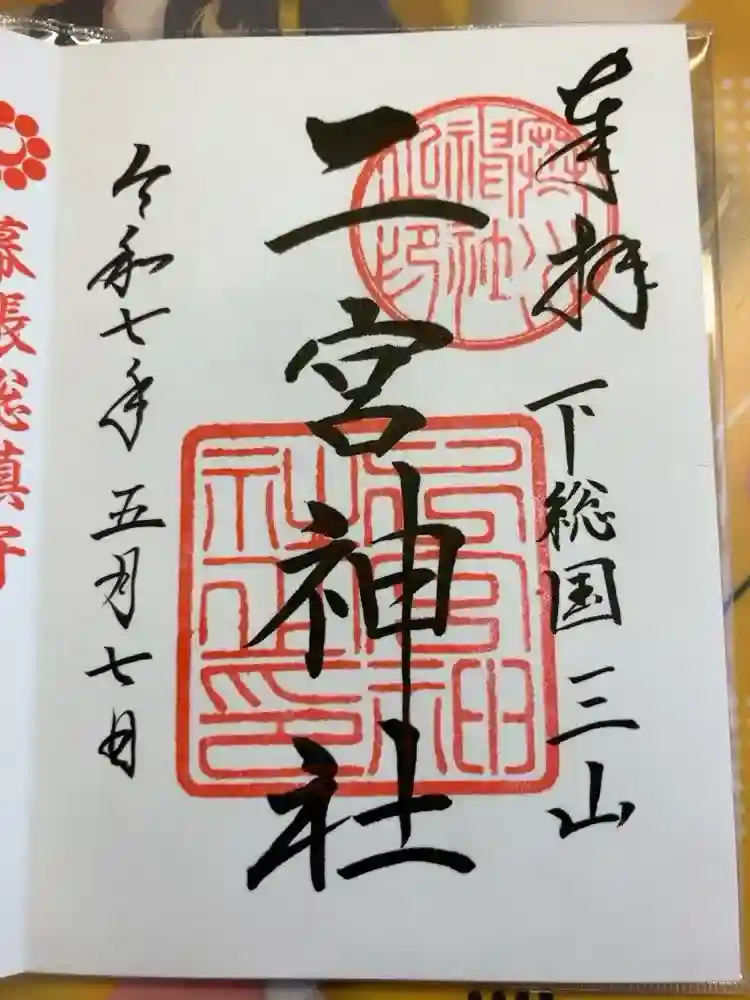 奉拝
下総国三山
二宮神社
令和七年五月七日
幕張総鎮守